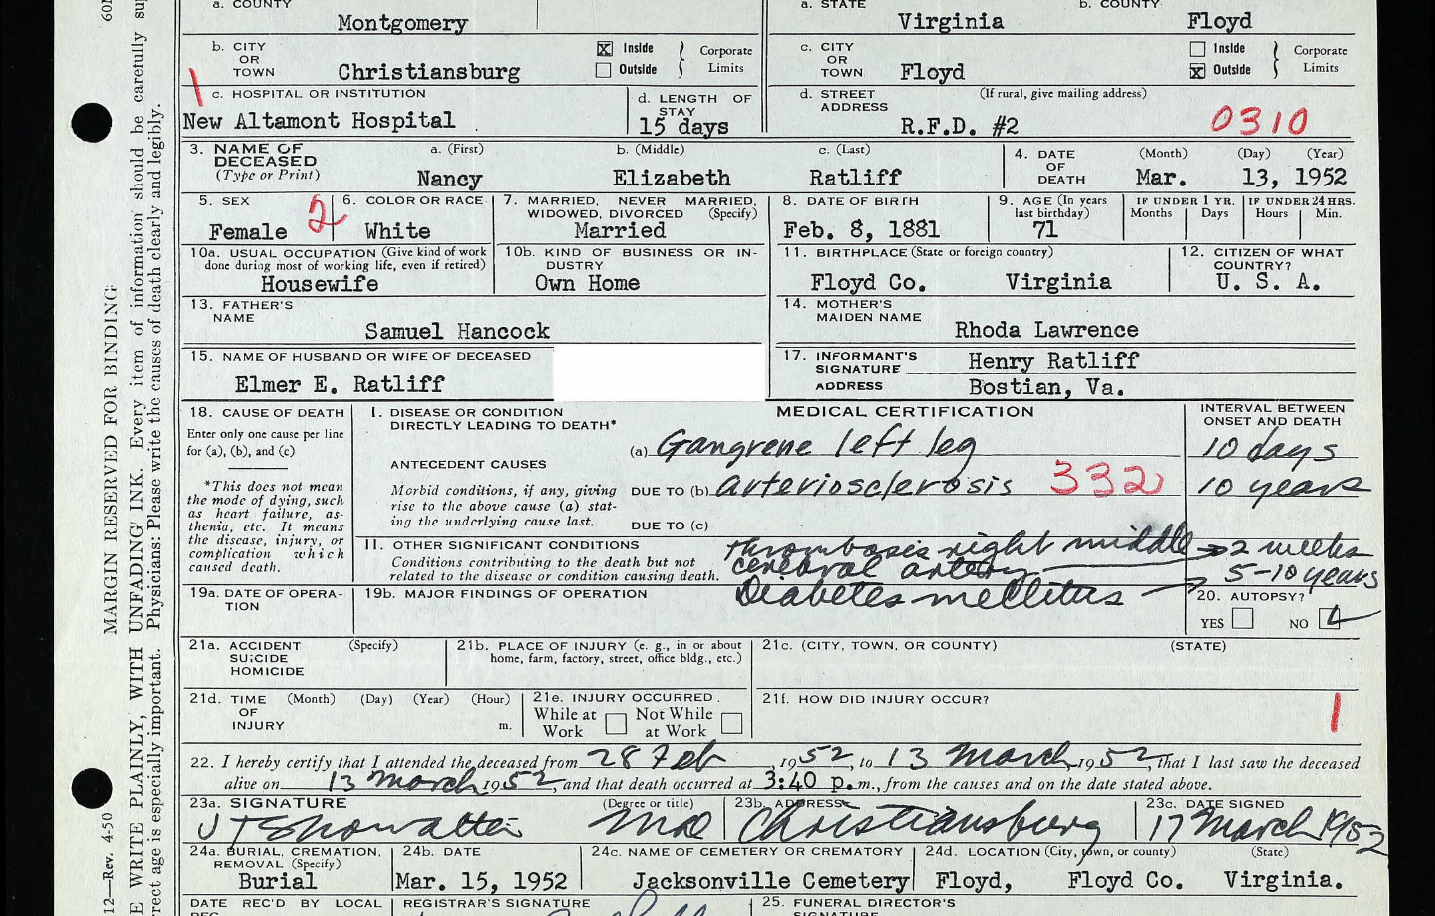 a. COUNTY
Montgomery
a. STATE
Virginia
b. COUNTY
Floyd
b. CITY OR TOWN
Christiansburg
☒ Inside
☐ Outside
Corporate Limits
c. CITY OR TOWN
Floyd
☐ Inside
☒ Outside
Corporate Limits
c. HOSPITAL OR INSTITUTION
New Altamont Hospital
d. LENGTH OF STAY
15 days
d. STREET ADDRESS
(If rural, give mailing address)
R.F.D. #2
0310
3. NAME OF DECEASED
(Type or Print)
a. (First)
Nancy
b. (Middle)
Elizabeth
c. (Last)
Ratliff
4. DATE OF DEATH
(Month) (Day) (Year)
Mar. 13, 1952
5. SEX
Female
2
6. COLOR OR RACE
White
7. MARRIED, NEVER MARRIED, WIDOWED, DIVORCED (Specify)
Married
8. DATE OF BIRTH
Feb. 8, 1881
9. AGE (In years last birthday)
71
IF UNDER 1 YR.
Months Days
IF UNDER 24 HRS.
Hours Min.
10a. USUAL OCCUPATION (Give kind of work
done during most of working life, even if retired)
Housewife
10b. KIND OF BUSINESS OR IN-
DUSTRY
Own Home
11. BIRTHPLACE (State or foreign country)
Floyd Co. Virginia
12. CITIZEN OF WHAT COUNTRY?
U. S. A.
13. FATHER'S NAME
Samuel Hancock
14. MOTHER'S MAIDEN NAME
Rhoda Lawrence
15. NAME OF HUSBAND OR WIFE OF DECEASED
Elmer E. Ratliff
17. INFORMANT'S SIGNATURE
Henry Ratliff
ADDRESS
Bostian, Va.
18. CAUSE OF DEATH
Enter only one cause per line
for (a), (b), and (c)
*This does not mean
the mode of dying, such
as heart failure, as-
thenia, etc. It means
the disease, injury, or
complication which
caused death.
MEDICAL CERTIFICATION
INTERVAL BETWEEN ONSET AND DEATH
I. DISEASE OR CONDITION
DIRECTLY LEADING TO DEATH*
(a) Gangrene left leg
10 days
ANTECEDENT CAUSES
Morbid conditions, if any, giving
rise to the above cause (a) stat-
ing the underlying cause last.
DUE TO (b) arteriosclerosis
332
10 years
DUE TO (c)
II. OTHER SIGNIFICANT CONDITIONS
Conditions contributing to the death but not
related to the disease or condition causing death.
thrombosis right middle
cerebral artery
2 weeks
5-10 years
19a. DATE OF OPERA-
TION
19b. MAJOR FINDINGS OF OPERATION
Diabetes mellitus
20. AUTOPSY?
YES NO
21a. ACCIDENT
SUICIDE
HOMICIDE
(Specify)
21b. PLACE OF INJURY (e. g., in or about
home, farm, factory, street, office bldg., etc.)
21c. (CITY, TOWN, OR COUNTY)
(STATE)
21d. TIME OF INJURY
(Month) (Day) (Year) (Hour)
m.
21e. INJURY OCCURRED
While at Work
Not While at Work
21f. HOW DID INJURY OCCUR?
22. I hereby certify that I attended the deceased from 28 Feb, 1952, to 13 March, 1952, that I last saw the deceased
alive on 13 March, 1952, and that death occurred at 3:40 p.m., from the causes and on the date stated above.
23a. SIGNATURE
(Degree or title)
J T Showalter MD
23b. ADDRESS
Christiansburg
23c. DATE SIGNED
17 March 1952
24a. BURIAL, CREMATION,
REMOVAL (Specify)
Burial
24b. DATE
Mar. 15, 1952
24c. NAME OF CEMETERY OR CREMATORY
Jacksonville Cemetery
24d. LOCATION (City, town, or county)
(State)
Floyd, Floyd Co. Virginia.
DATE REC'D BY LOCAL
REG.
REGISTRAR'S SIGNATURE
25. FUNERAL DIRECTOR'S
SIGNATURE
MARGIN RESERVED FOR BINDING
WRITE PLAINLY, WITH UNFADING INK. Every item of information should be carefully
rect age is especially important. Physicians: Please write the causes of death clearly and legibly.
12—Rev. 4-50